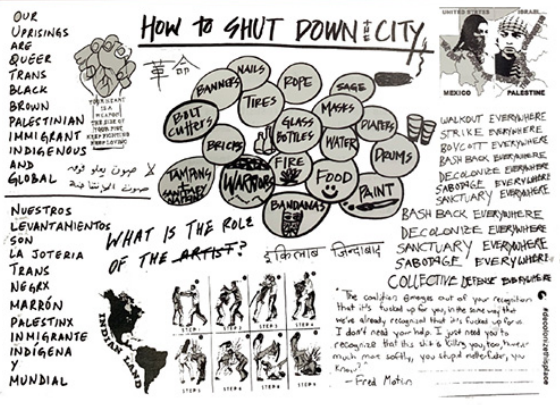 OUR
UPRISINGS
ARE
QUEER
TRANS
BLACK
BROWN
PALESTINIAN
IMMIGRANT
INDIGENOUS
AND
GLOBAL
NUESTROS
LEVANTAMIENTOS
SON
LA JOTERIA
TRANS
NEGRX
MARRÓN
PALESTINX
INMIGRANTE
INDÍGENA
Y
MUNDIAL
HOW TO SHUT DOWN THE CITY
革命
YOUR HEART
IS A
WEAPON
THE SIZE OF
YOUR FIST
KEEP FIGHTING
KEEP LOVING
NAILS
BANNERS
ROPE
SAGE
TIRES
MASKS
BOLT
CUTTERS
GLASS
BOTTLES
DIAPERS
WATER
BRICKS
DRUMS
FIRE
TAMPONS
WARRIORS
FOOD
PAINT
BANDANAS
WHAT IS THE ROLE
OF THE ARTIST?
INDIAN LAND
STEP 1
STEP 2
STEP 3
STEP 4
UNITED STATES
ISRAEL
MEXICO
PALESTINE
WALKOUT EVERYWHERE
STRIKE EVERYWHERE
BOYCOTT EVERYWHERE
BASH BACK EVERYWHERE
DECOLONIZE EVERYWHERE
SABOTAGE EVERYWHERE
SANCTUARY EVERYWHERE
BASH BACK EVERYWHERE
DECOLONIZE EVERYWHERE
SANCTUARY EVERYWHERE
SABOTAGE EVERYWHERE
COLLECTIVE DEFENSE EVERYWHERE
"The coalition emerges out of your recognition
that it's fucked up for you, in the same way that
we've already recognized that it's fucked up for us.
I don't need your help. I just need you to
recognize that this shit is killing you, too, however
much more softly, you stupid motherfucker, you
know?"
—Fred Moten
#decolonizethisplace